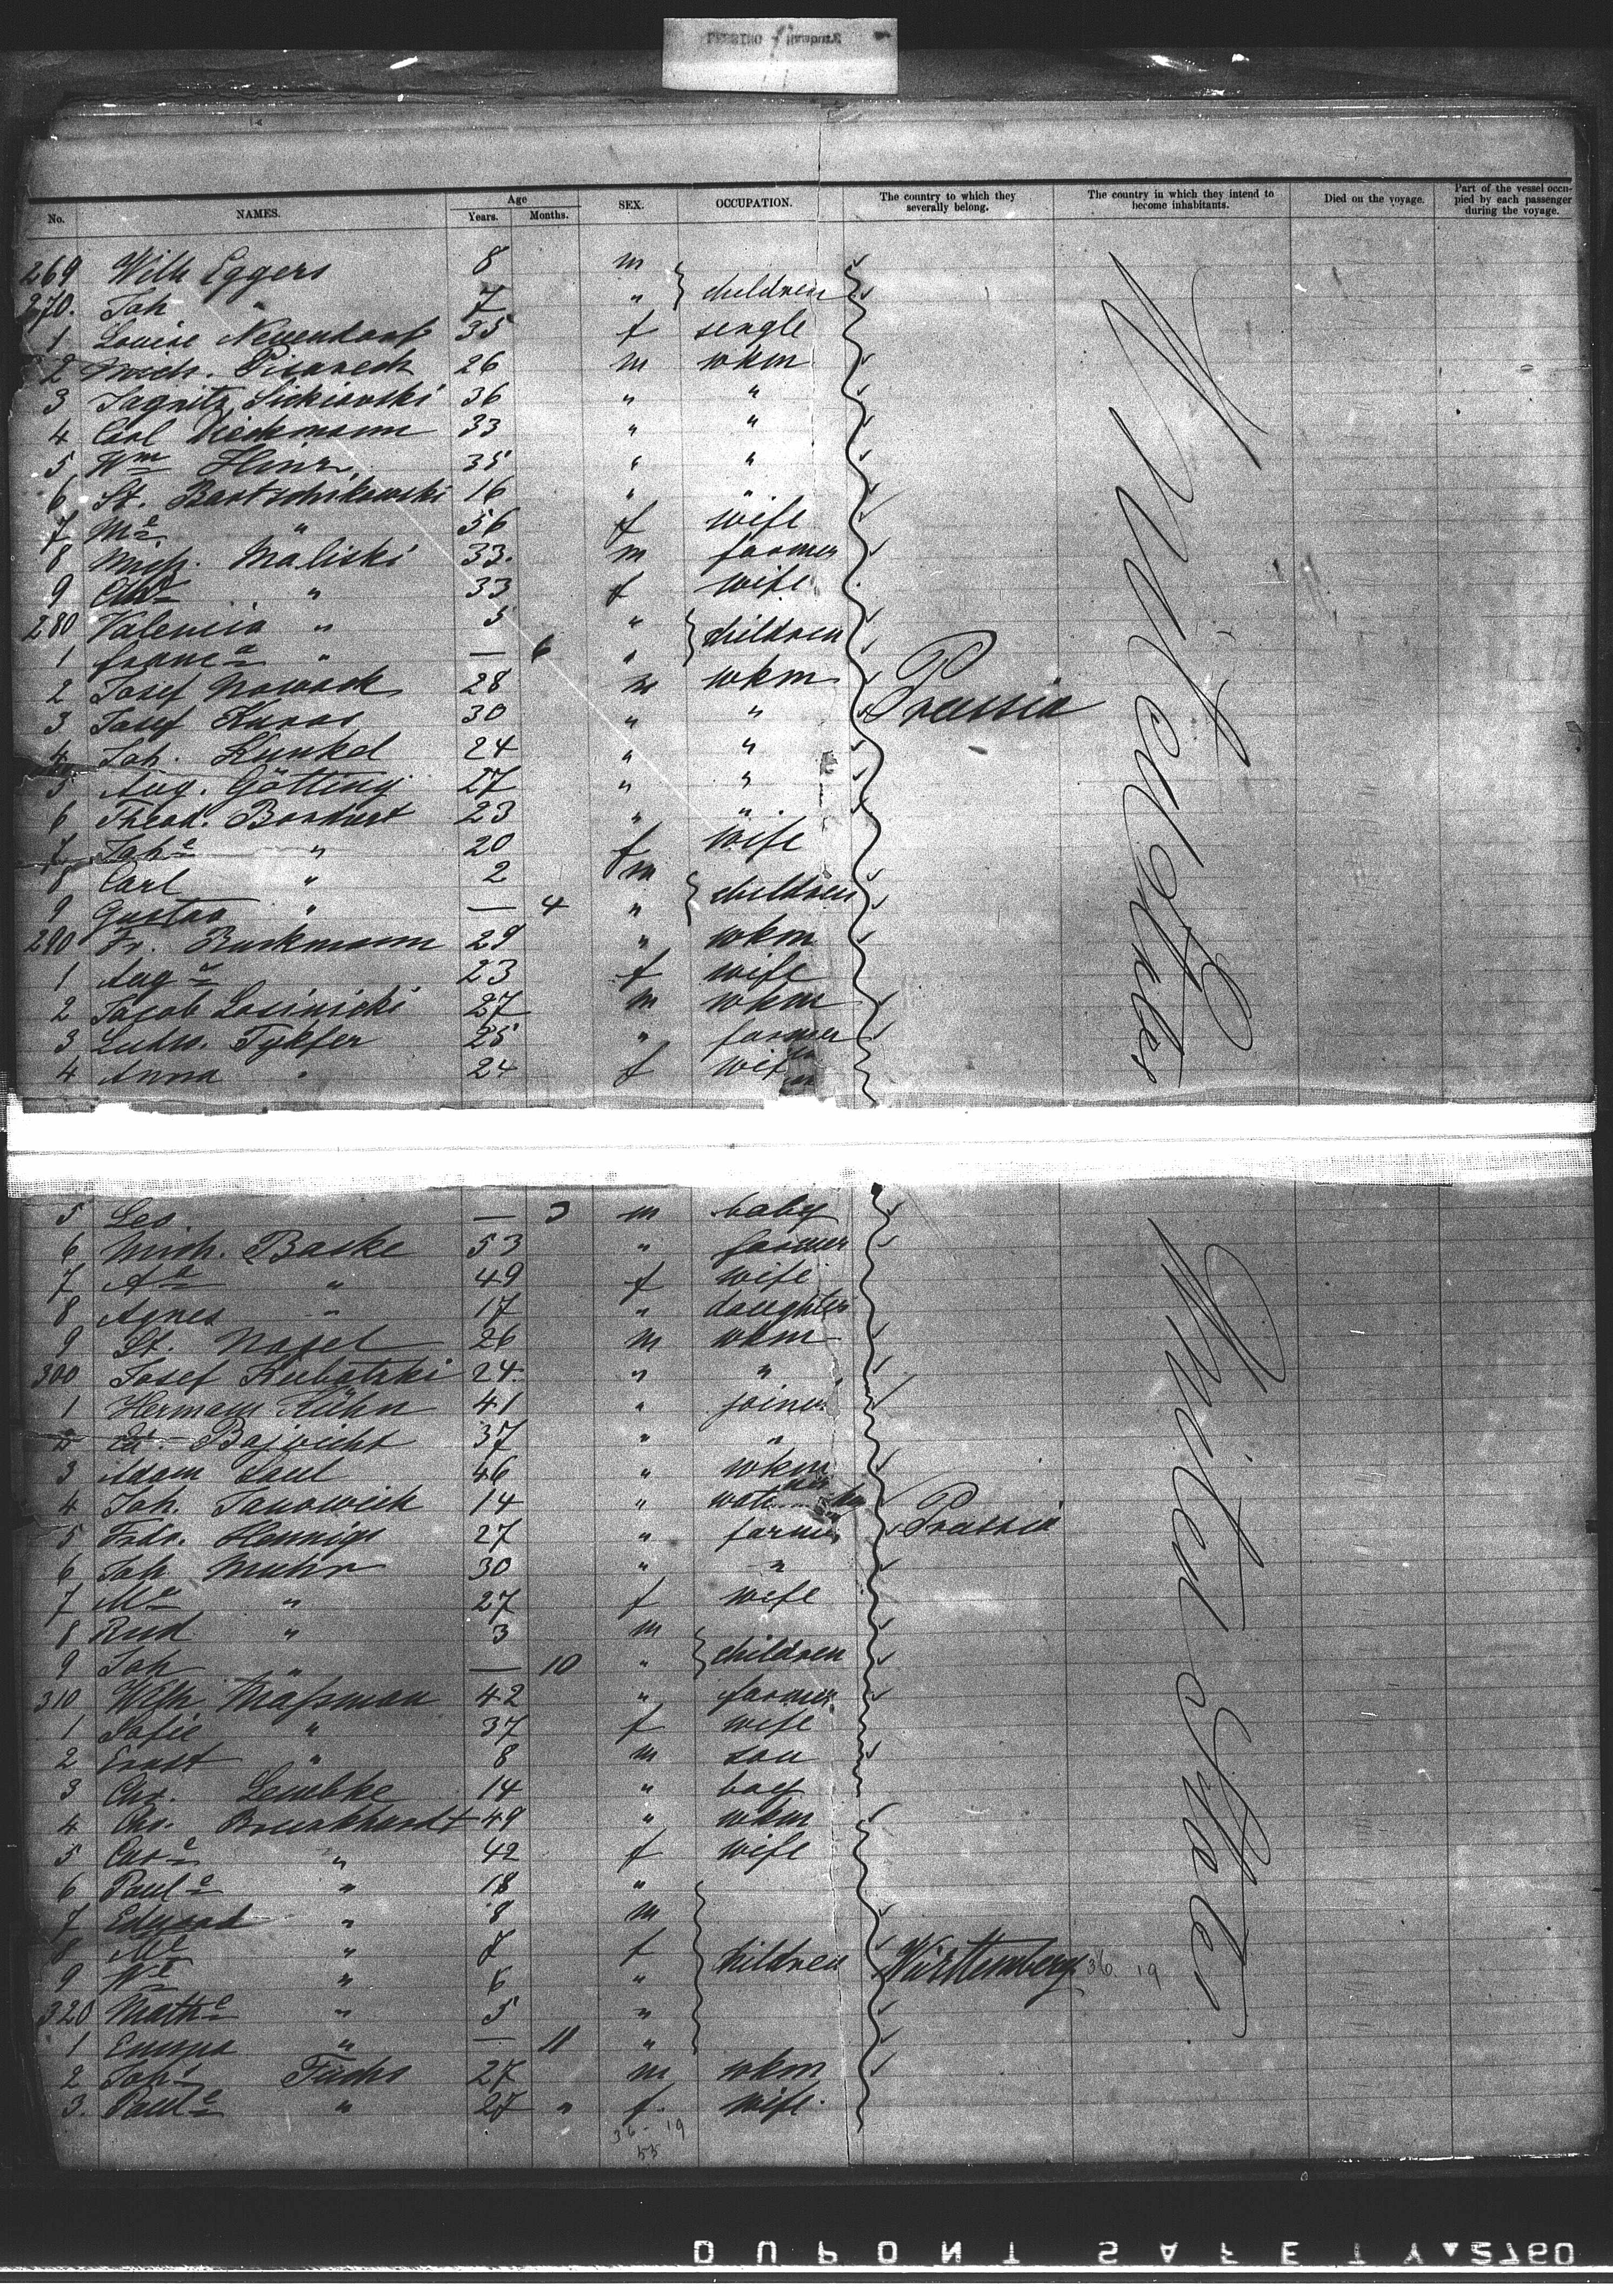 No. NAMES. Age Years. Months. SEX. OCCUPATION. The country to which they severally belong. The country in which they intend to become inhabitants. Died on the voyage. Part of the vessel occupied by each passenger during the voyage.
269 Wilh Eggers 8 m
270. Joh " 7 " } children
1 Louise Neuendorf 35 f single
2 Mich. Pisareck 26 m wkm
3 Sickiorski 36 " "
4 Carl Dieckmann 33 " "
5 Wm Hinz 35 " "
6 St. Bartschikowski 16 " "
7 Me " 56 f wife
8 Mich. Maliski 33. m farmer
9 " 33 f wife
280 Valencia " 5 " } children
1 Franca " — 6 "
2 Josef Nowack 28 m wkm
3 Josef Kuras 30 " " Prussia
4 Joh. Kunkel 24 " "
5 Aug. Götting 27 " "
6 Theod. Bordwet 23 " "
7 Johe " 20 f wife
8 Carl " 2 m
9 Gustav " — 4 " } children
290 Fr. Buckmann 29 " wkm
1 Auge 23 f wife
2 Jacob Losinicki 27 m wkm
3 Ludw. Tykfer 25 " farmer
4 Anna " 24 f wife
United States
5 Leo — 3 m baby
6 Mich. Baske 53 " farmer
7 Ae " 49 f wife
8 Agnes " 17 " daughter
9 St. Nagel 26 m wkm
300 Josef Kubatzki 24 " "
1 Hermann Kühn 41 " joiner
2 Ed. Bajvicht 37 " "
3 Adam Saul 46 " wkm
4 Joh. Janoweick 14 "
5 Frdr. Hennigs 27 " farmer Prussia
6 Joh Muhr 30 " "
7 Me " 27 f wife
8 Rud " 3 m
9 Joh " — 10 " } children
310 Wilh. Maßman 42 " farmer
1 Sofie " 37 f wife
2 Ernst " 8 m son
3 Chr. Lembke 14 " boy
4 Chr. Bruckhardt 49 " wkm
5 Care " 42 f wife
6 Paule " 18 "
7 Edward " 8 m
8 Me " 7 f } children Württemberg 36 19
9 We " 6 "
320 Mathe " 5 "
1 Emma " — 11 "
2 Joh Fuchs 27 m wkm
3. Paule " 27 " f. wife.
36 - 19
55
United States
DUPONT SAFETY 2760